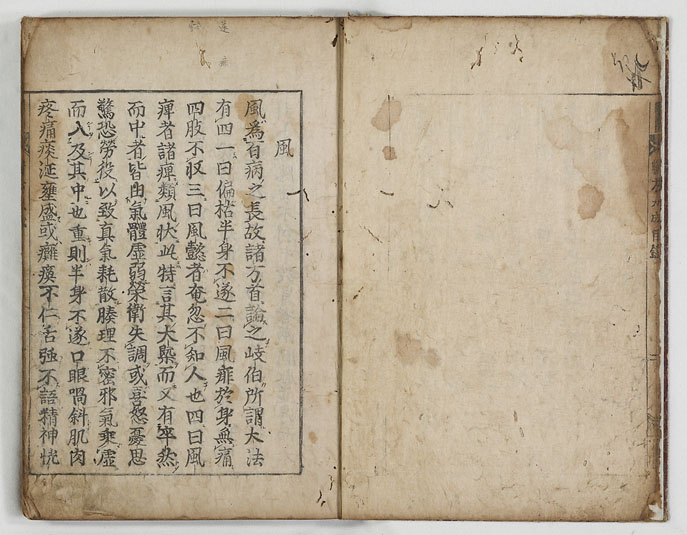 風
風爲百病之長故諸方首論之岐伯所謂大法
有四一曰偏枯半身不遂二曰風痱於身無痛
四肢不収三曰風懿者奄忽不知人也四曰風
痺者諸痺類風狀此特言其大槩而又有卒然
而中者皆由氣體虛弱榮衛失調或喜怒憂思
驚恐勞役以致真氣耗散腠理不密邪氣乘虛
而入及其中也重則半身不遂口眼喎斜肌肉
疼痛痰涎壅盛或癱瘓不仁舌强不語精神恍